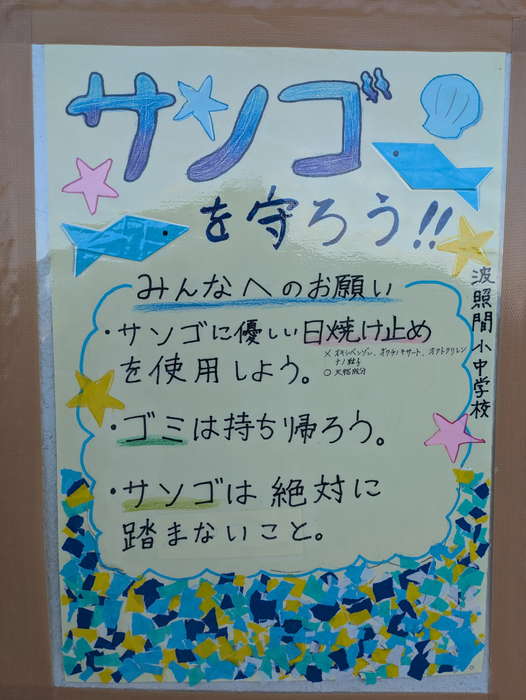 サンゴ
を守ろう!!
波照間小中学校
みんなへのお願い
・サンゴに優しい日焼け止め
× オキシベンゾン、オクチノキサート、オクトクリレン
ナノ粒子
○ 天然成分
を使用しよう。
・ゴミは持ち帰ろう。
・サンゴは絶対に
踏まないこと。